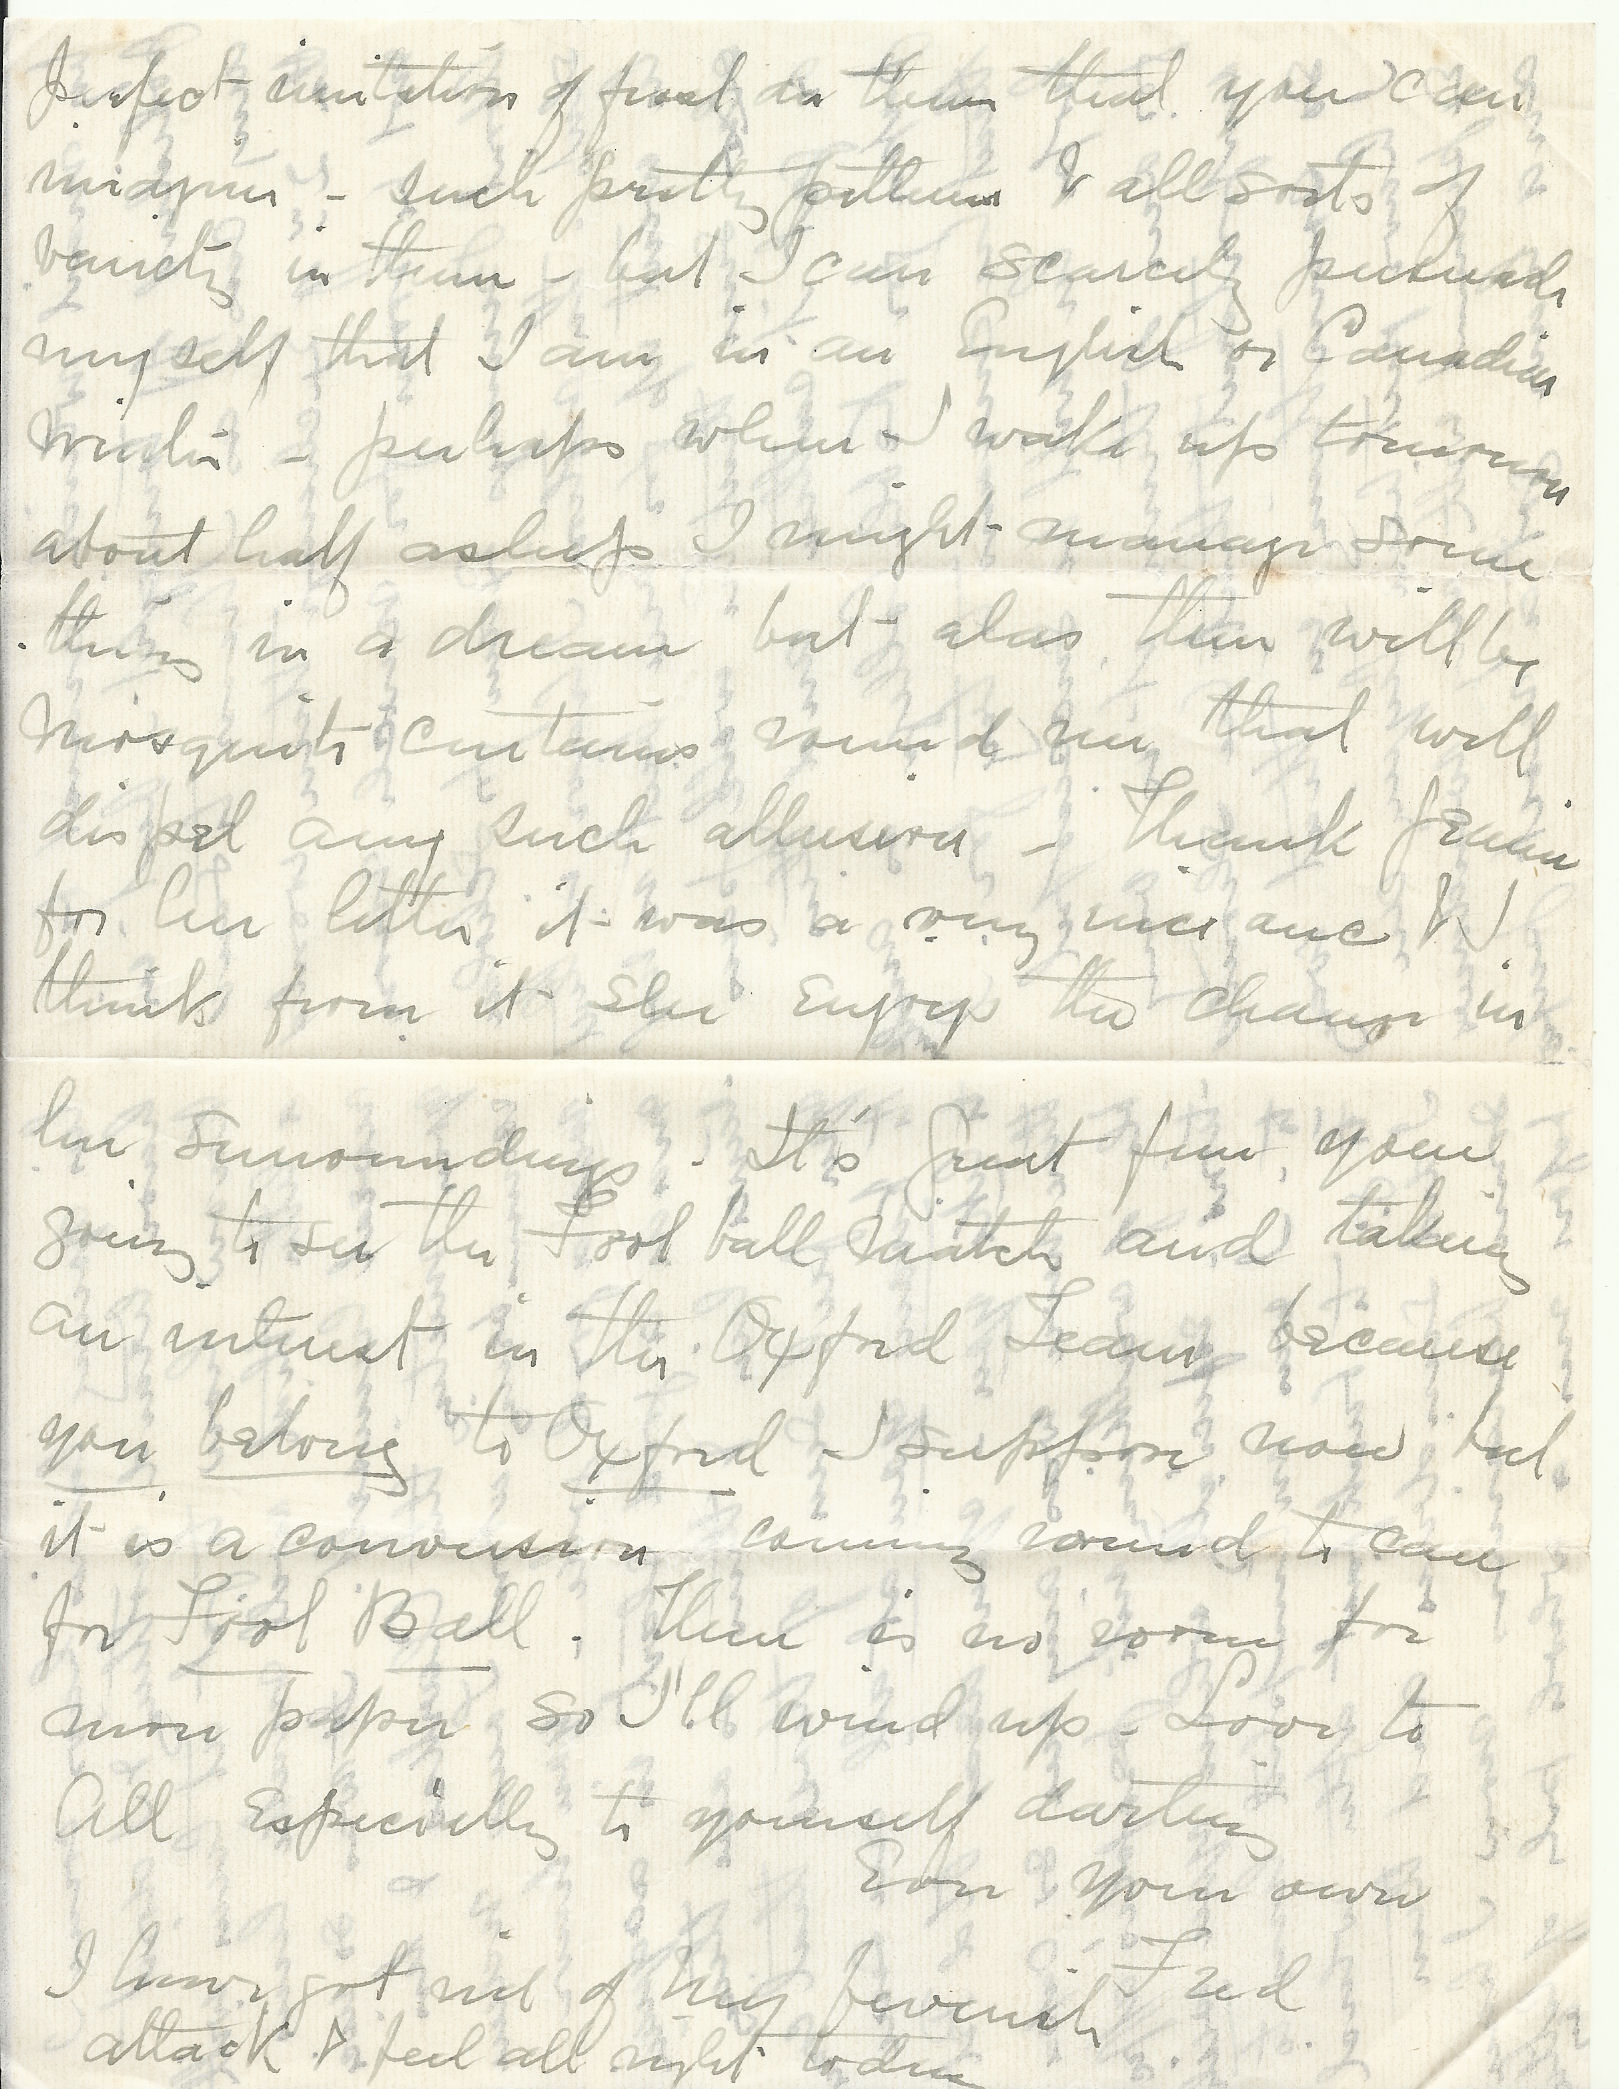 perfect imitation of frost on them that you can
imagine - such pretty patterns & all sorts of
variety in them - but I can scarcely persuade
myself that I am in an English or Canadian
winter - perhaps when I wake up tomorrow
about half asleep I might manage some
thing in a dream but alas there will be
mosquito curtains round me that will
dispel any such allusion - Thank
for her letter it was a very nice one & I
think from it she enjoys the change in
her surroundings. It's great fun, your
going to see the Foot ball match and taking
an interest in the Oxford Team because
you belong to Oxford I suppose now but
it is a conversion coming round to care
for Foot Ball. There is no room for
more paper so I'll wind up - Love to
All especially to yourself darling
Ever your own
Fred
I have got rid of my feverish
attack & feel all right today